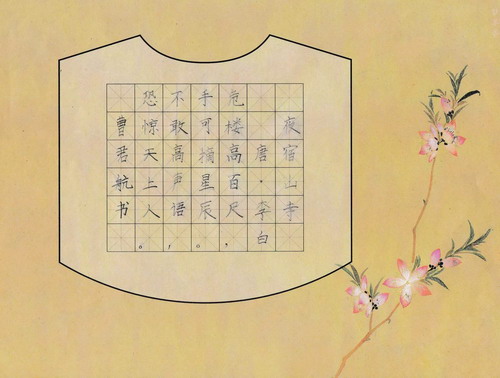 夜宿山寺
唐·李白
危楼高百尺，
手可摘星辰。
不敢高声语，
恐惊天上人。
曹君航书